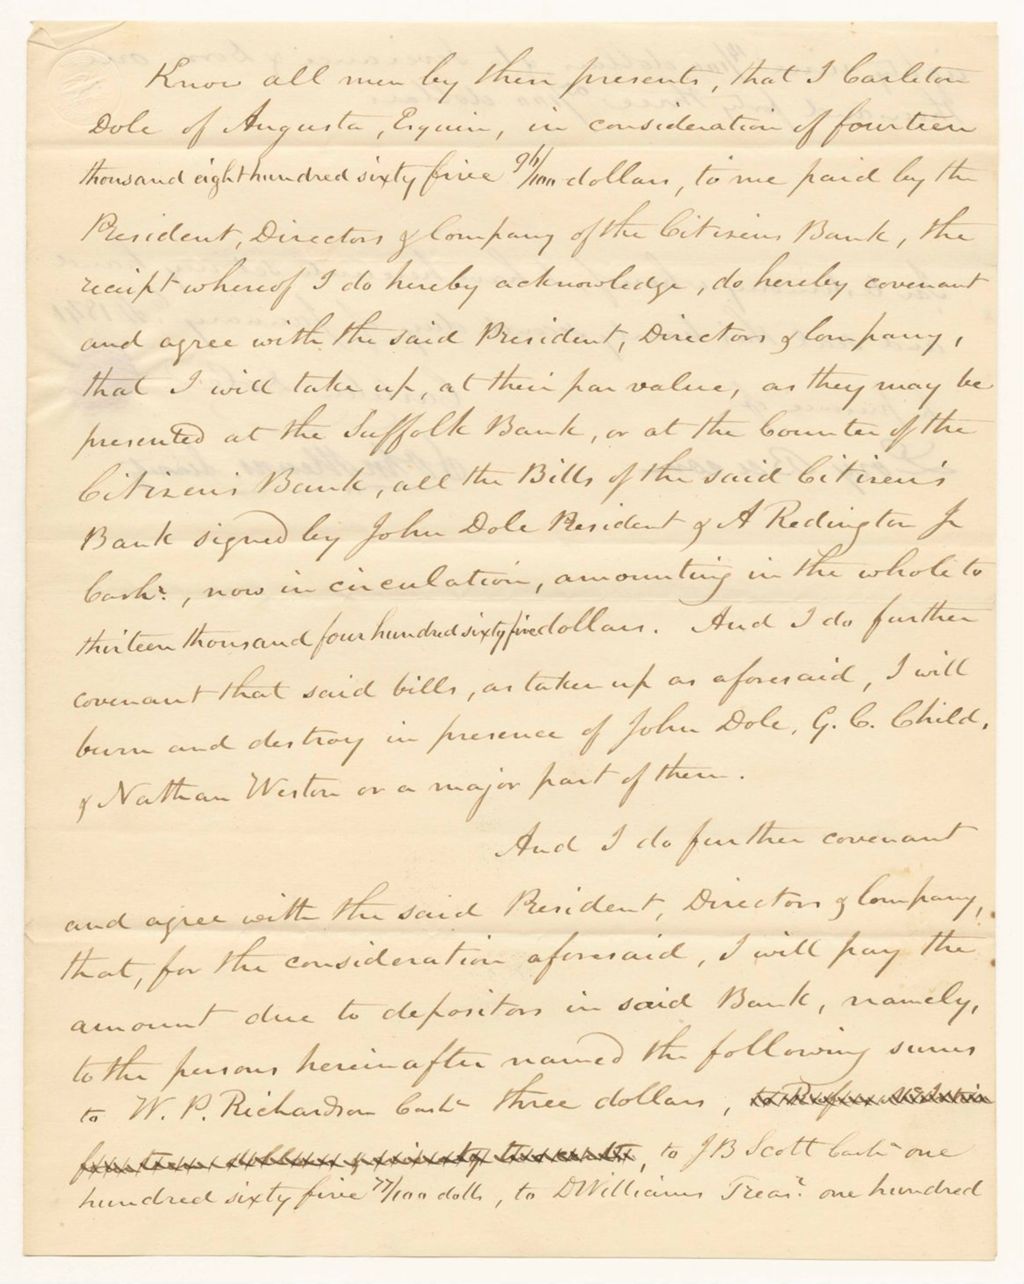 Know all men by these presents, that I Carleton
Dole of Augusta, Esquire, in consideration of fourteen
thousand eight hundred sixty five 96/100 dollars, to me paid by the
President, Directors & Company of the Citizens Bank, the
receipt whereof I do hereby acknowledge, do hereby covenant
and agree with the said President, Directors & Company,
that I will take up, at their par value, as they may be
presented at the Suffolk Bank, or at the Counter of the
Citizens Bank, all the Bills of the said Citizen's
Bank signed by John Dole President & A Redington Jr
Cashr., now in circulation, amounting in the whole to
thirteen thousand four hundred sixty five dollars. And I do further
covenant that said bills, as taken up as aforesaid, I will
burn and destroy in presence of John Dole, G. C. Child,
& Nathan Weston or a major part of them.
And I do further covenant
and agree with the said President, Directors & Company,
that, for the consideration aforesaid, I will pay the
amount due to depositors in said Bank, namely,
to the persons hereinafter named the following sums
to W. P. Richardson Cashr three dollars, to Rufus
dollars & , to J B Scott Cashr one
hundred sixty five 77/100 dolls, to D Williams Treasr. one hundred